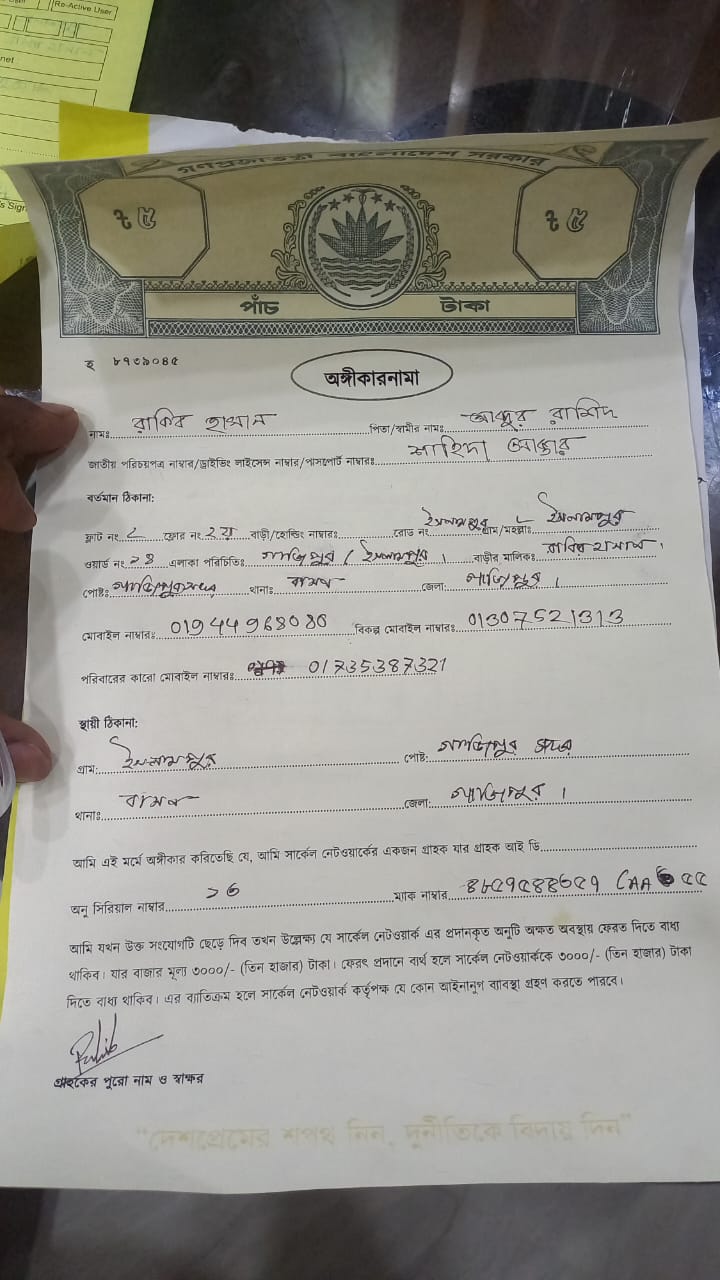 Re-Active User
net
s Sign
গণপ্রজাতন্ত্রী বাংলাদেশ সরকার
৳ ৫ ৳ ৫
পাঁচ টাকা
হ ৮৭৩৯০৪৫
অঙ্গীকারনামা
নামঃ রাকিব হাসান পিতা/স্বামীর নামঃ আব্দুর রাশিদ
জাতীয় পরিচয়পত্র নাম্বার/ড্রাইভিং লাইসেন্স নাম্বার/পাসপোর্ট নাম্বারঃ শাহিদা আক্তার
বর্তমান ঠিকানা:
ফ্লাট নং ফ্লোর নং ২য় বাড়ী/হোল্ডিং নাম্বারঃ রোড নং ইসলামপুর গ্রাম/মহল্লাঃ ইসলামপুর
ওয়ার্ড নং ১৪ এলাকা পরিচিতিঃ গাজিপুর / ইসলামপুর । বাড়ীর মালিকঃ রাকিব হাসান ।
পোষ্টঃ গাজিপুর সদর থানাঃ বাসন জেলা: গাজিপুর ।
মোবাইল নাম্বারঃ 01944968086 বিকল্প মোবাইল নাম্বারঃ 01307521313
পরিবারের কারো মোবাইল নাম্বারঃ 01735387321
স্থায়ী ঠিকানা:
গ্রাম: ইসলামপুর পোষ্ট: গাজিপুর সদর
থানাঃ বাসন জেলা: গাজিপুর ।
আমি এই মর্মে অঙ্গীকার করিতেছি যে, আমি সার্কেল নেটওয়ার্কের একজন গ্রাহক যার গ্রাহক আই ডি
অনু সিরিয়াল নাম্বার ১৬ ম্যাক নাম্বার
আমি যখন উক্ত সংযোগটি ছেড়ে দিব তখন উল্লেক্ষ্য যে সার্কেল নেটওয়ার্ক এর প্রদানকৃত অনুটি অক্ষত অবস্থায় ফেরত দিতে বাধ্য
থাকিব। যার বাজার মূল্য ৩০০০/- (তিন হাজার) টাকা। ফেরৎ প্রদানে ব্যর্থ হলে সার্কেল নেটওয়ার্ককে ৩০০০/- (তিন হাজার) টাকা
দিতে বাধ্য থাকিব। এর ব্যাতিক্রম হলে সার্কেল নেটওয়ার্ক কর্তৃপক্ষ যে কোন আইনানুগ ব্যাবস্থা গ্রহণ করতে পারবে।
গ্রাহকের পুরো নাম ও স্বাক্ষর
"দেশপ্রেমের শপথ নিন, দুর্নীতিকে বিদায় দিন"